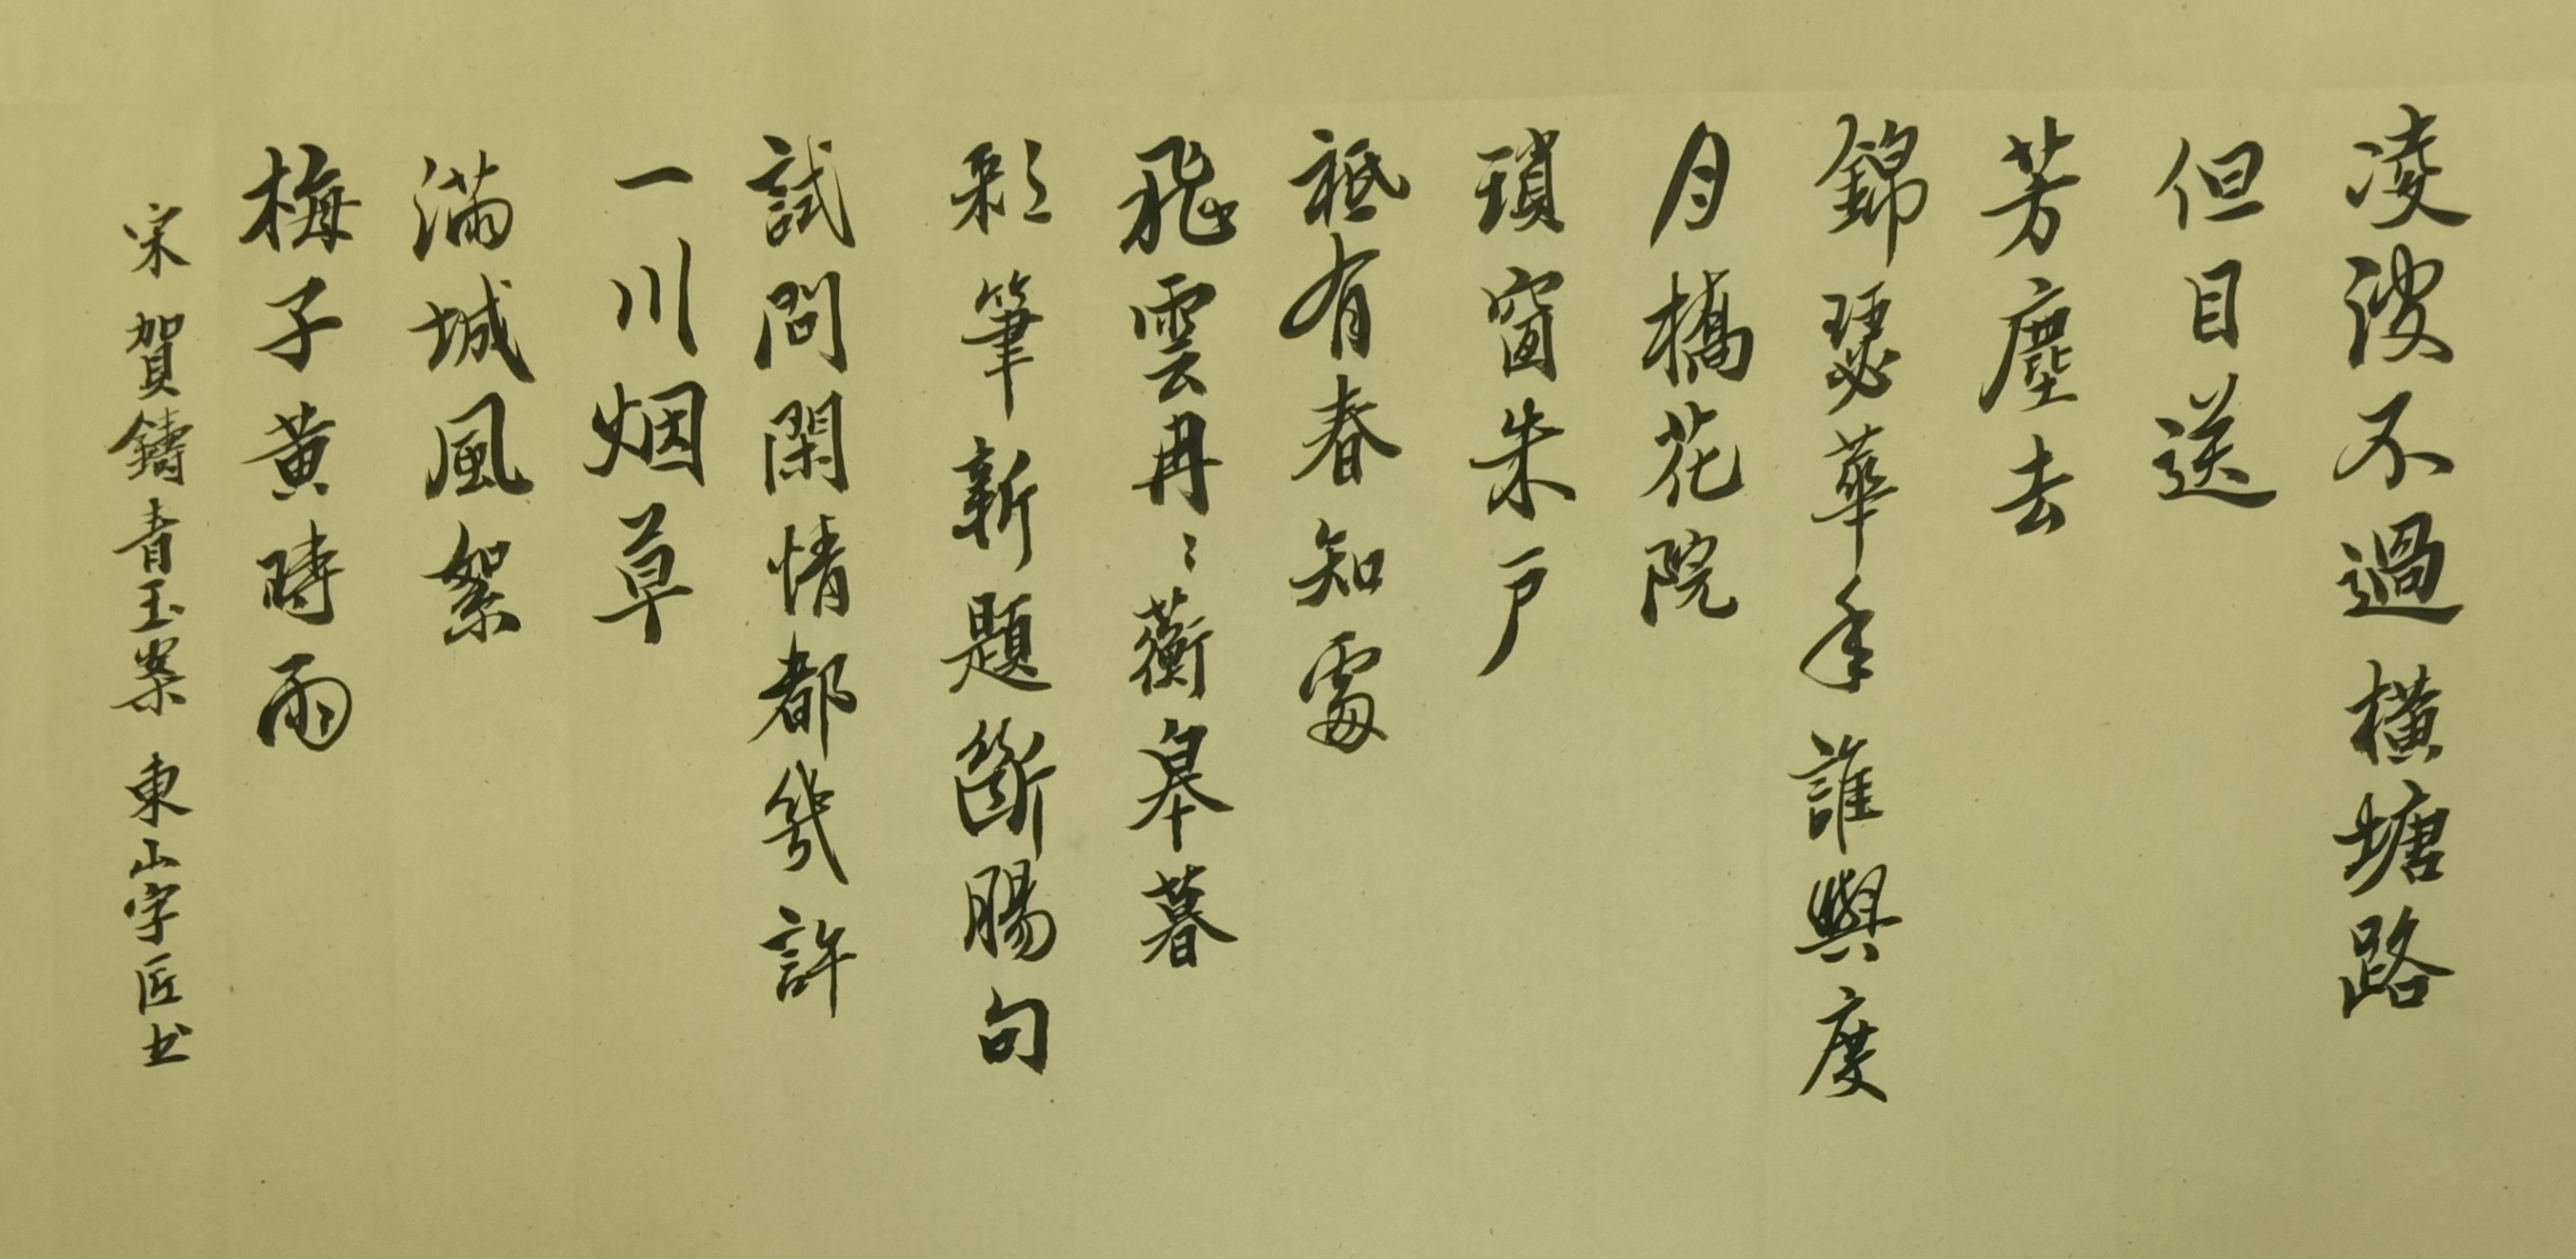 凌波不過橫塘路
但目送
芳塵去
錦瑟華年誰與度
月橋花院
瑣窗朱戶
祗有春知處
飛雲冉〻蘅皋暮
彩筆新題斷腸句
試問閑情都幾許
一川烟草
滿城風絮
梅子黃時雨
宋 賀鑄青玉案 東山字匠书